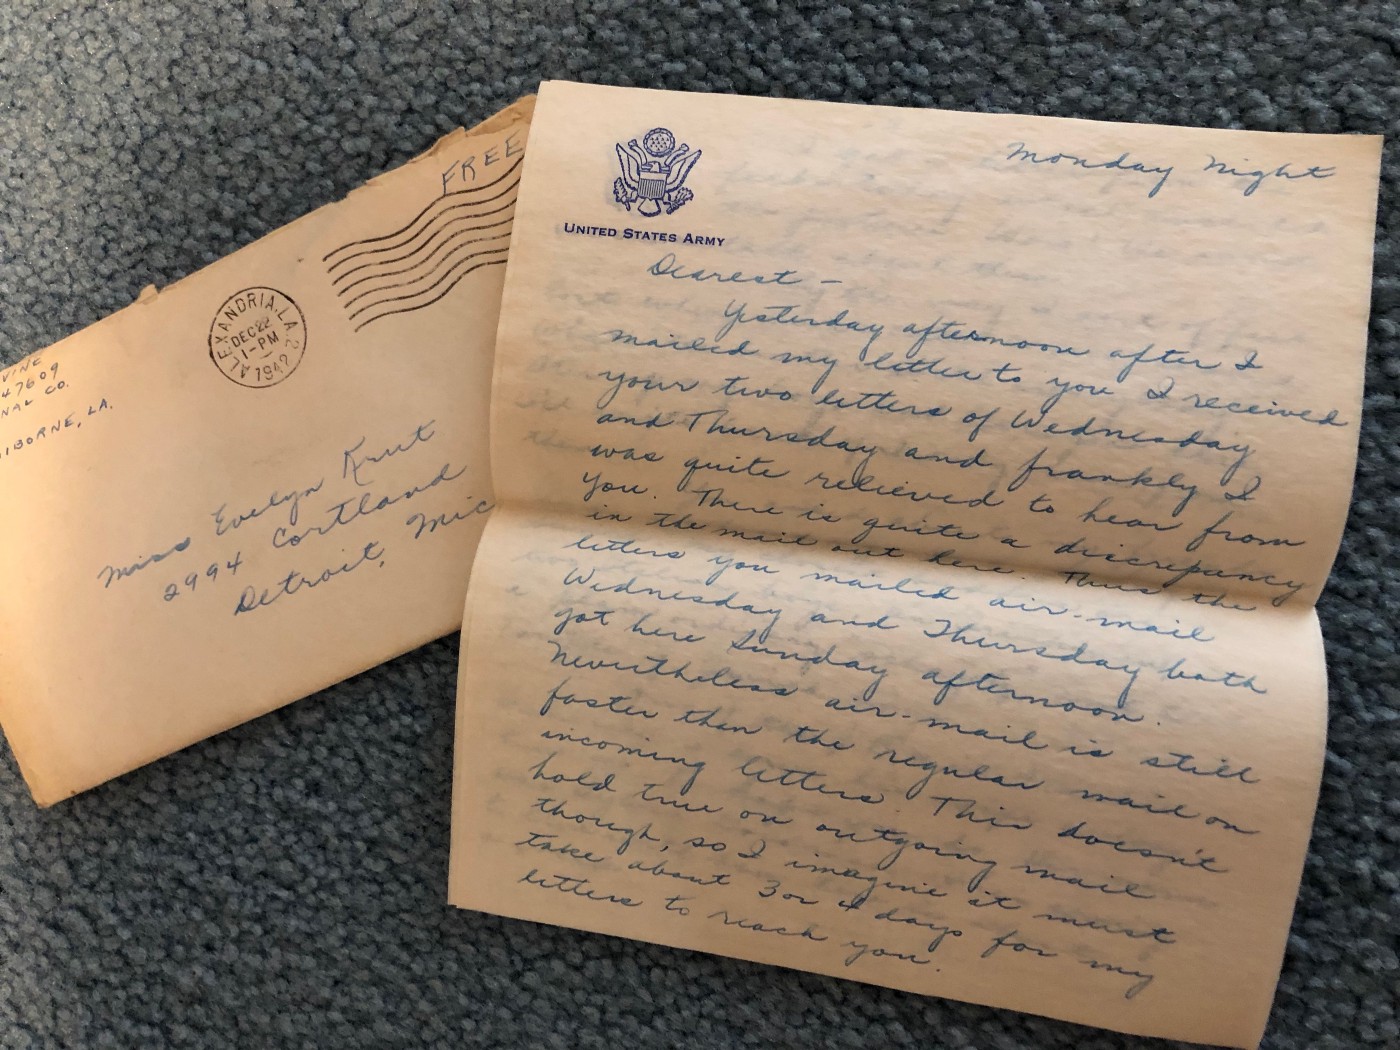 FREE
ALEXANDRIA, LA. 2
DEC 22
1-PM
1942
VINE
47609
NAL CO.
IBORNE, LA.
Miss Evelyn Krut
2994 Cortland
Detroit, Mic
UNITED STATES ARMY
Monday Night
Dearest –
Yesterday afternoon after I
mailed my letter to you I received
your two letters of Wednesday
and Thursday and frankly I
was quite relieved to hear from
you. There is quite a discrepancy
in the mail out here. Thus the
letters you mailed air-mail
Wednesday and Thursday both
got here Sunday afternoon.
Nevertheless air-mail is still
faster then the regular mail on
incoming letters. This doesn't
hold true on outgoing mail
though, so I imagine it must
take about 3 or 4 days for my
letters to reach you.